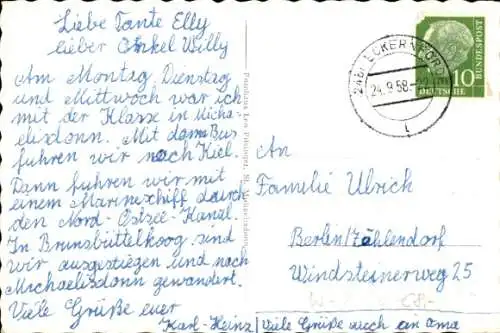 Liebe Tante Elly
lieber Onkel Willy
Am Montag, Dienstag
und Mittwoch war ich
mit der Klasse in Micha-
elisdonn. Mit dem Bus
fuhren wir nach Kiel.
Dann fuhren wir mit
einem Marineschiff durch
den Nord-Ostzee-Kanal.
In Brunsbüttelkoog sind
wir ausgestiegen und nach
Michaelisdonn gewandert.
Viele Grüße euer
Karl-Heinz/Viele Grüße auch an Oma
ECKERNFÖR
24.9.58
10
DEUTSCHE
BUNDESPOST
An
Familie Ulrich
Berlin/Zehlendorf
Windsteinerweg 25